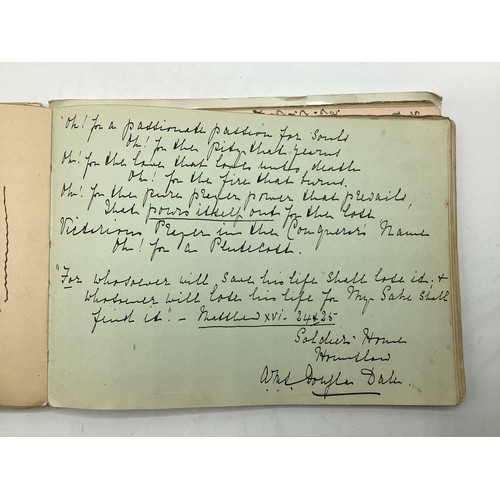 "Oh! for a passionate passion for Souls
Oh! for the pity that yearns
Oh! for the love that loves unto death
Oh! for the fire that burns.
Oh! for the pure prayer power that prevails,
That pours itself out for the lost
Victorious Prayer in the Conqueror's Name
Oh! for a Pentecost.
"For whosoever will save his life shall lose it: &
whosoever will lose his life for My Sake shall
find it." - Matthew xvi- 24 & 25
Soldiers' Home
Hounslow
Douglas Dale.